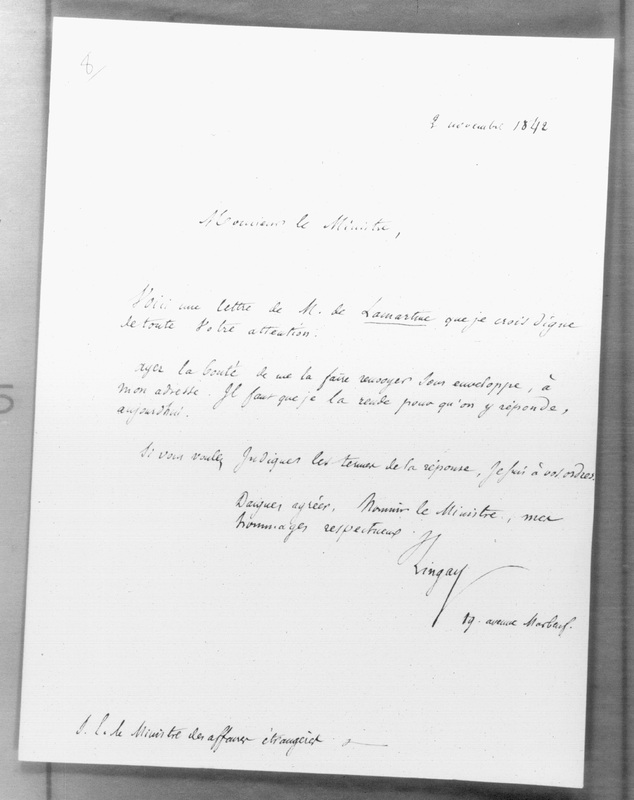 8
2 novembre 1842
Monsieur le Ministre,
Voici une lettre de M. de Lamartine que je crois digne
de toute votre attention.
ayez la bonté de me la faire renvoyer sous enveloppe, à
mon adresse. Il faut que je la rende pour qu'on y réponde,
aujourd'hui.
Si vous voulez indiquer les termes de la réponse, je suis à vos ordres.
Daignez agréer, Monsieur le Ministre, mes
hommages respectueux.
Lingay
19. avenue Marbeuf.
le Ministre des affaires étrangères
5